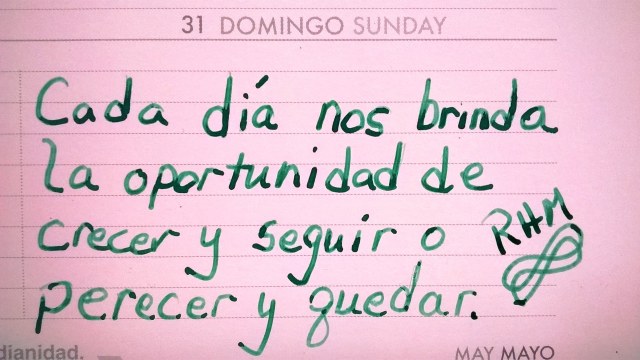 31 DOMINGO SUNDAY
Cada día nos brinda
la oportunidad de
crecer y seguir o
RHM
perecer y quedar.
dianidad.
MAY MAYO